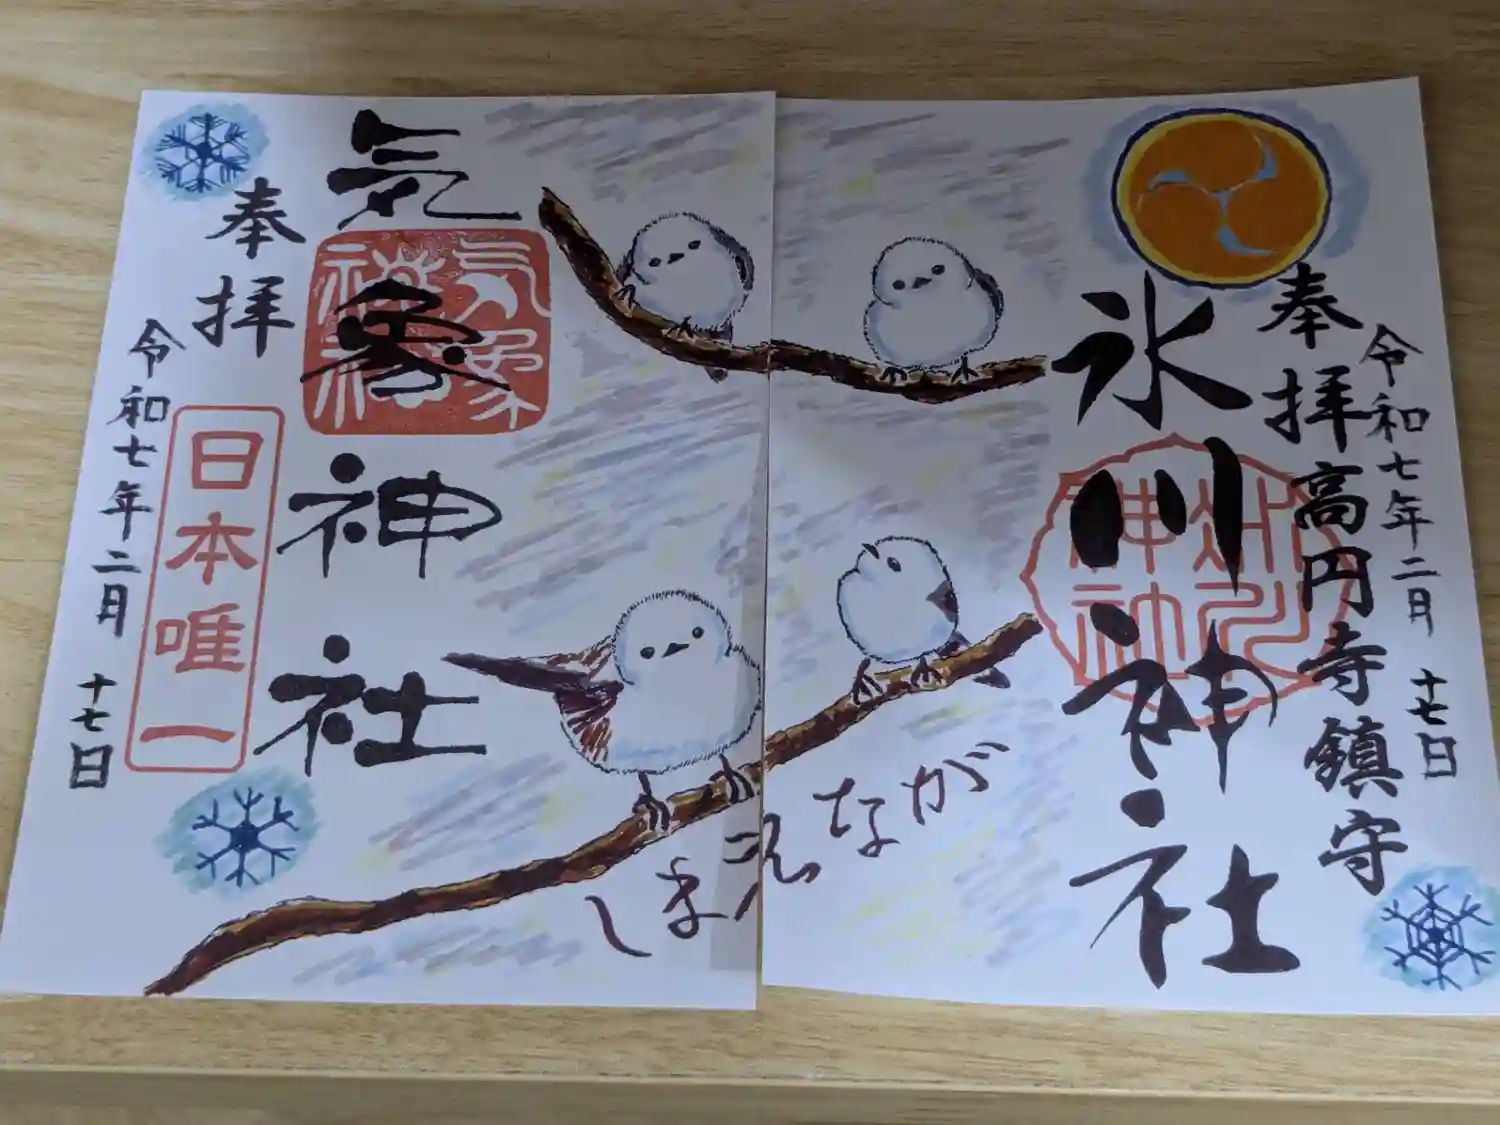 令和七年二月十七日
奉拝
高円寺鎮守
氷川神社
しまえながが
気象神社
気象神社
奉拝
日本唯一
令和七年二月十七日